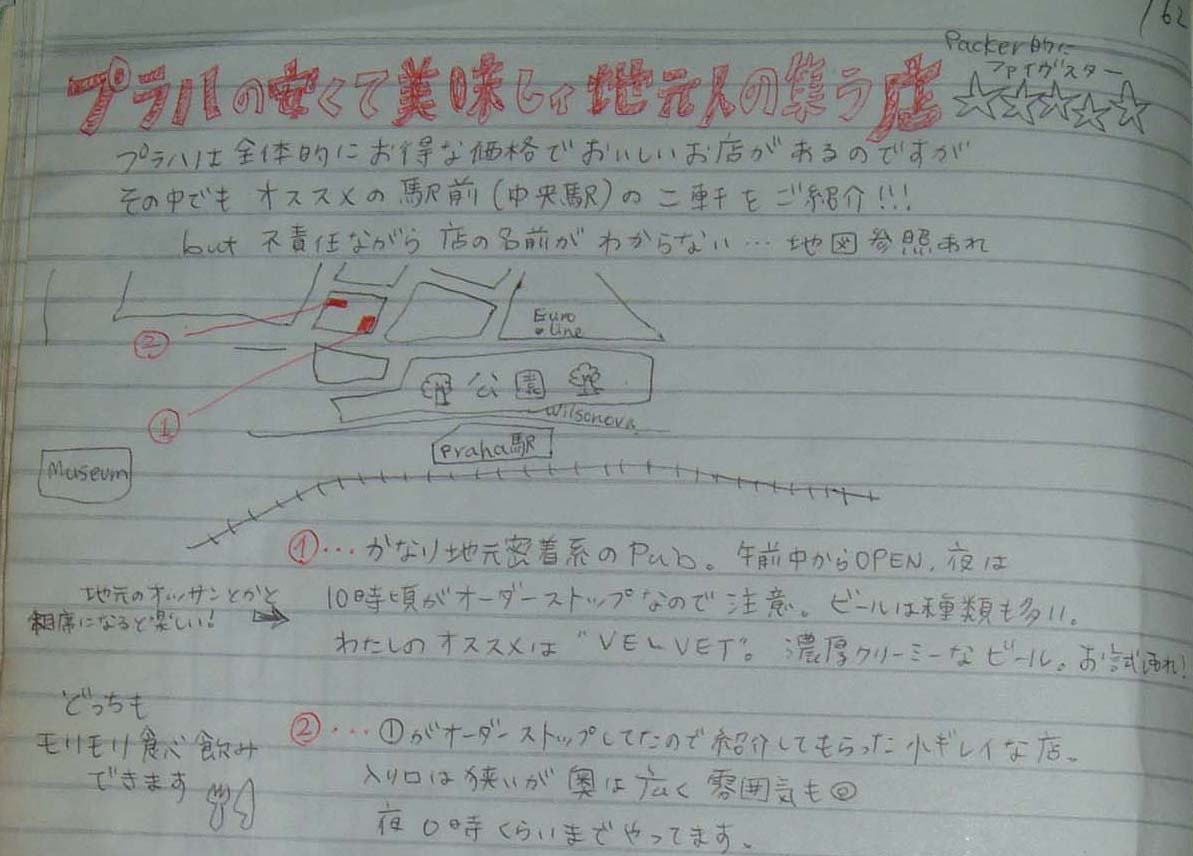 162
Packer的に
ファイヴスター
プラハの安くて美味しい地元人の集う店 ☆☆☆☆☆
プラハは全体的にお得な価格でおいしいお店があるのですが
その中でもオススメの駅前(中央駅)の二軒をご紹介!!!
but 不責任ながら店の名前がわからない… 地図参照あれ
Euro
Line
②
公園
①
Wilsonova
praha駅
Museum
①… かなり地元密着系のPub。午前中からOPEN、夜は
10時頃がオーダーストップなので注意。ビールは種類も多い。
わたしのオススメは"VELVET"。濃厚クリーミーなビール。お試あれ!
地元のオッサンとかと
相席になると楽しい!
②… ①がオーダーストップしてたので紹介してもらった小ギレイな店。
入り口は狭いが奥は広く雰囲気も◎
夜0時くらいまでやってます。
どっちも
モリモリ食べ飲み
できます